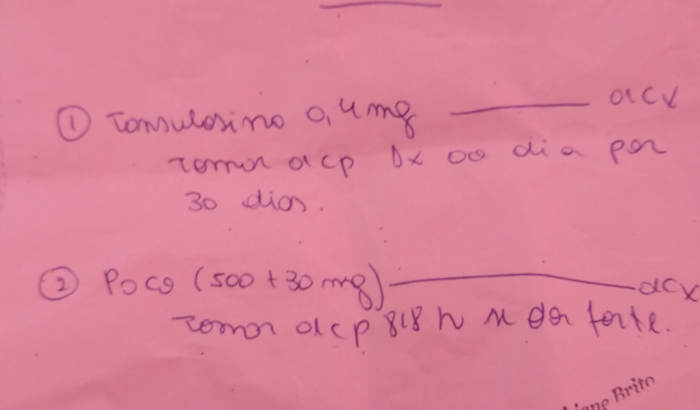 ① Tansulosino 0,4mg ——— 01 cx
Tomar 01 cp 1x ao dia por
30 dias.
② Paco (500 + 30 mg) ——— 01 cx
Tomar 01 cp 8/8 h se dor forte.
Brito